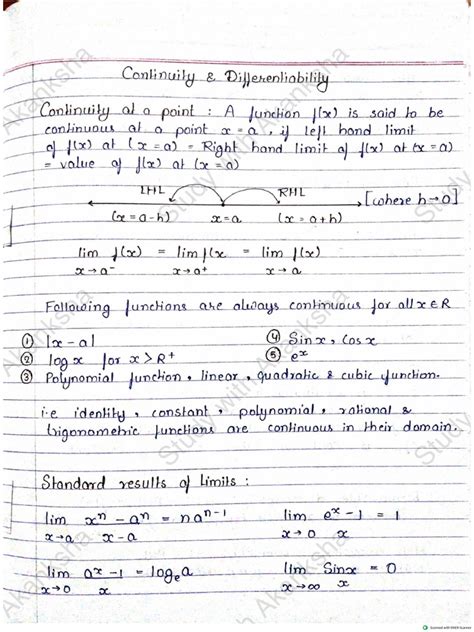 Continuity & Differentiability
Continuity at a point : A function f(x) is said to be
continuous at a point x = a , if left hand limit
of f(x) at (x = a) = Right hand limit of f(x) at (x = a)
= value of f(x) at (x = a)
LHL RHL
(x = a-h) x = a (x = a+h) [where h→0]
lim f(x) = lim f(x = lim f(x)
x→a⁻ x→a⁺ x→a
Following functions are always continuous for all x ∈ R
① |x - a| ④ Sin x , Cos x
② log x for x > R⁺ ⑤ eˣ
③ Polynomial function , linear , quadratic & cubic function.
i.e identity , constant , polynomial , rational &
trigonometric functions are continuous in their domain.
Standard results of limits :
lim xⁿ - aⁿ = naⁿ⁻¹ lim eˣ - 1 = 1
x→a x - a x→0 x
lim aˣ - 1 = logₑa lim Sinx = 0
x→0 x x→∞ x
Study with Akanksha
Scanned with OKEN Scanner